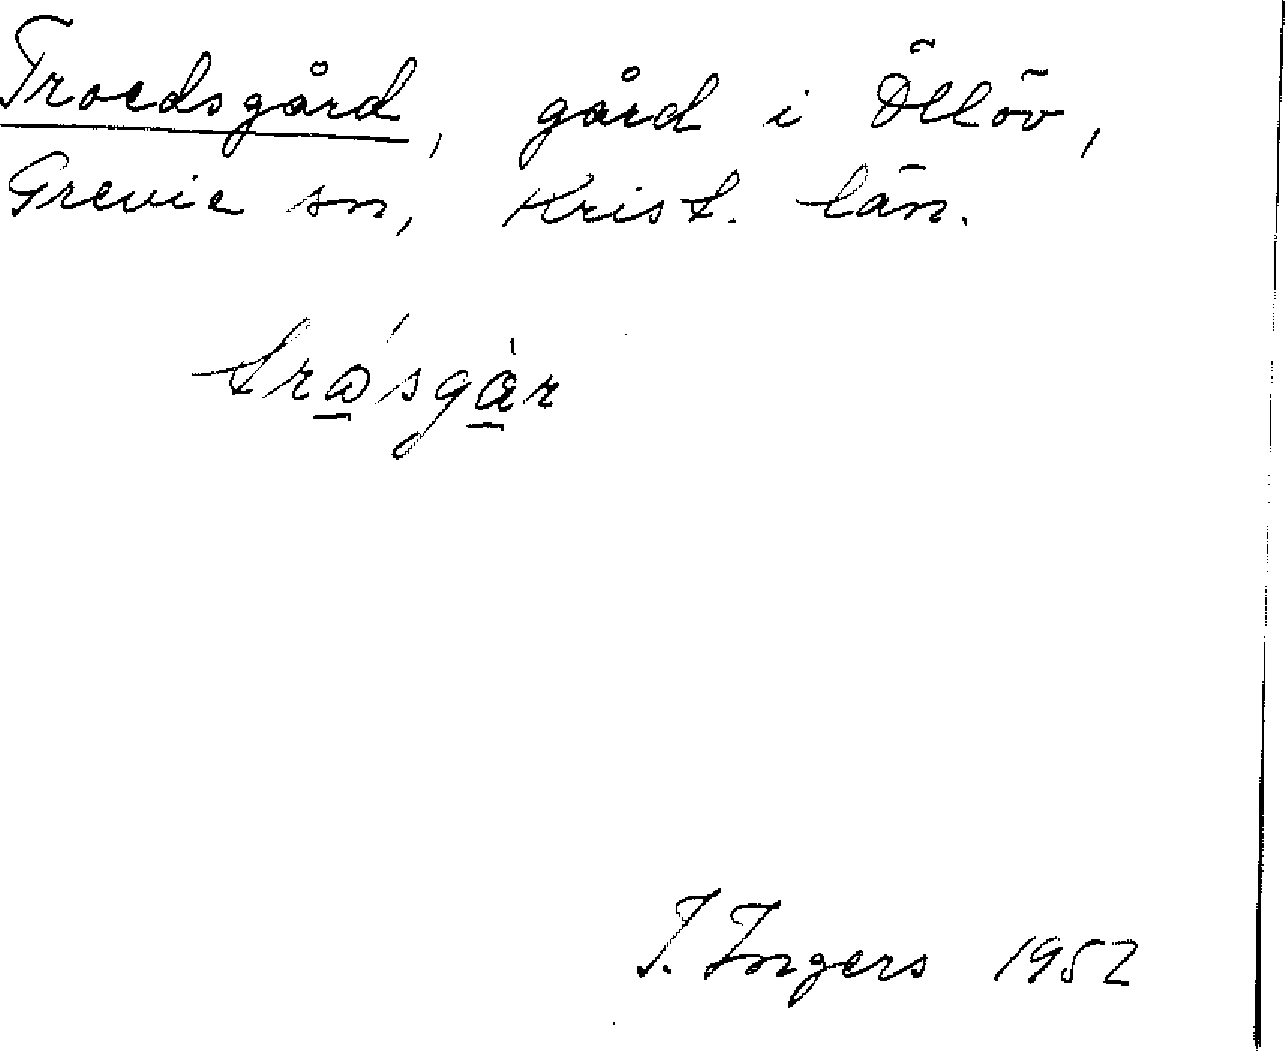 Troedsgård, gård i Öllöv,
Grevie sn, Krist. län.
trɷ́sgàr
I. Ingers 1952